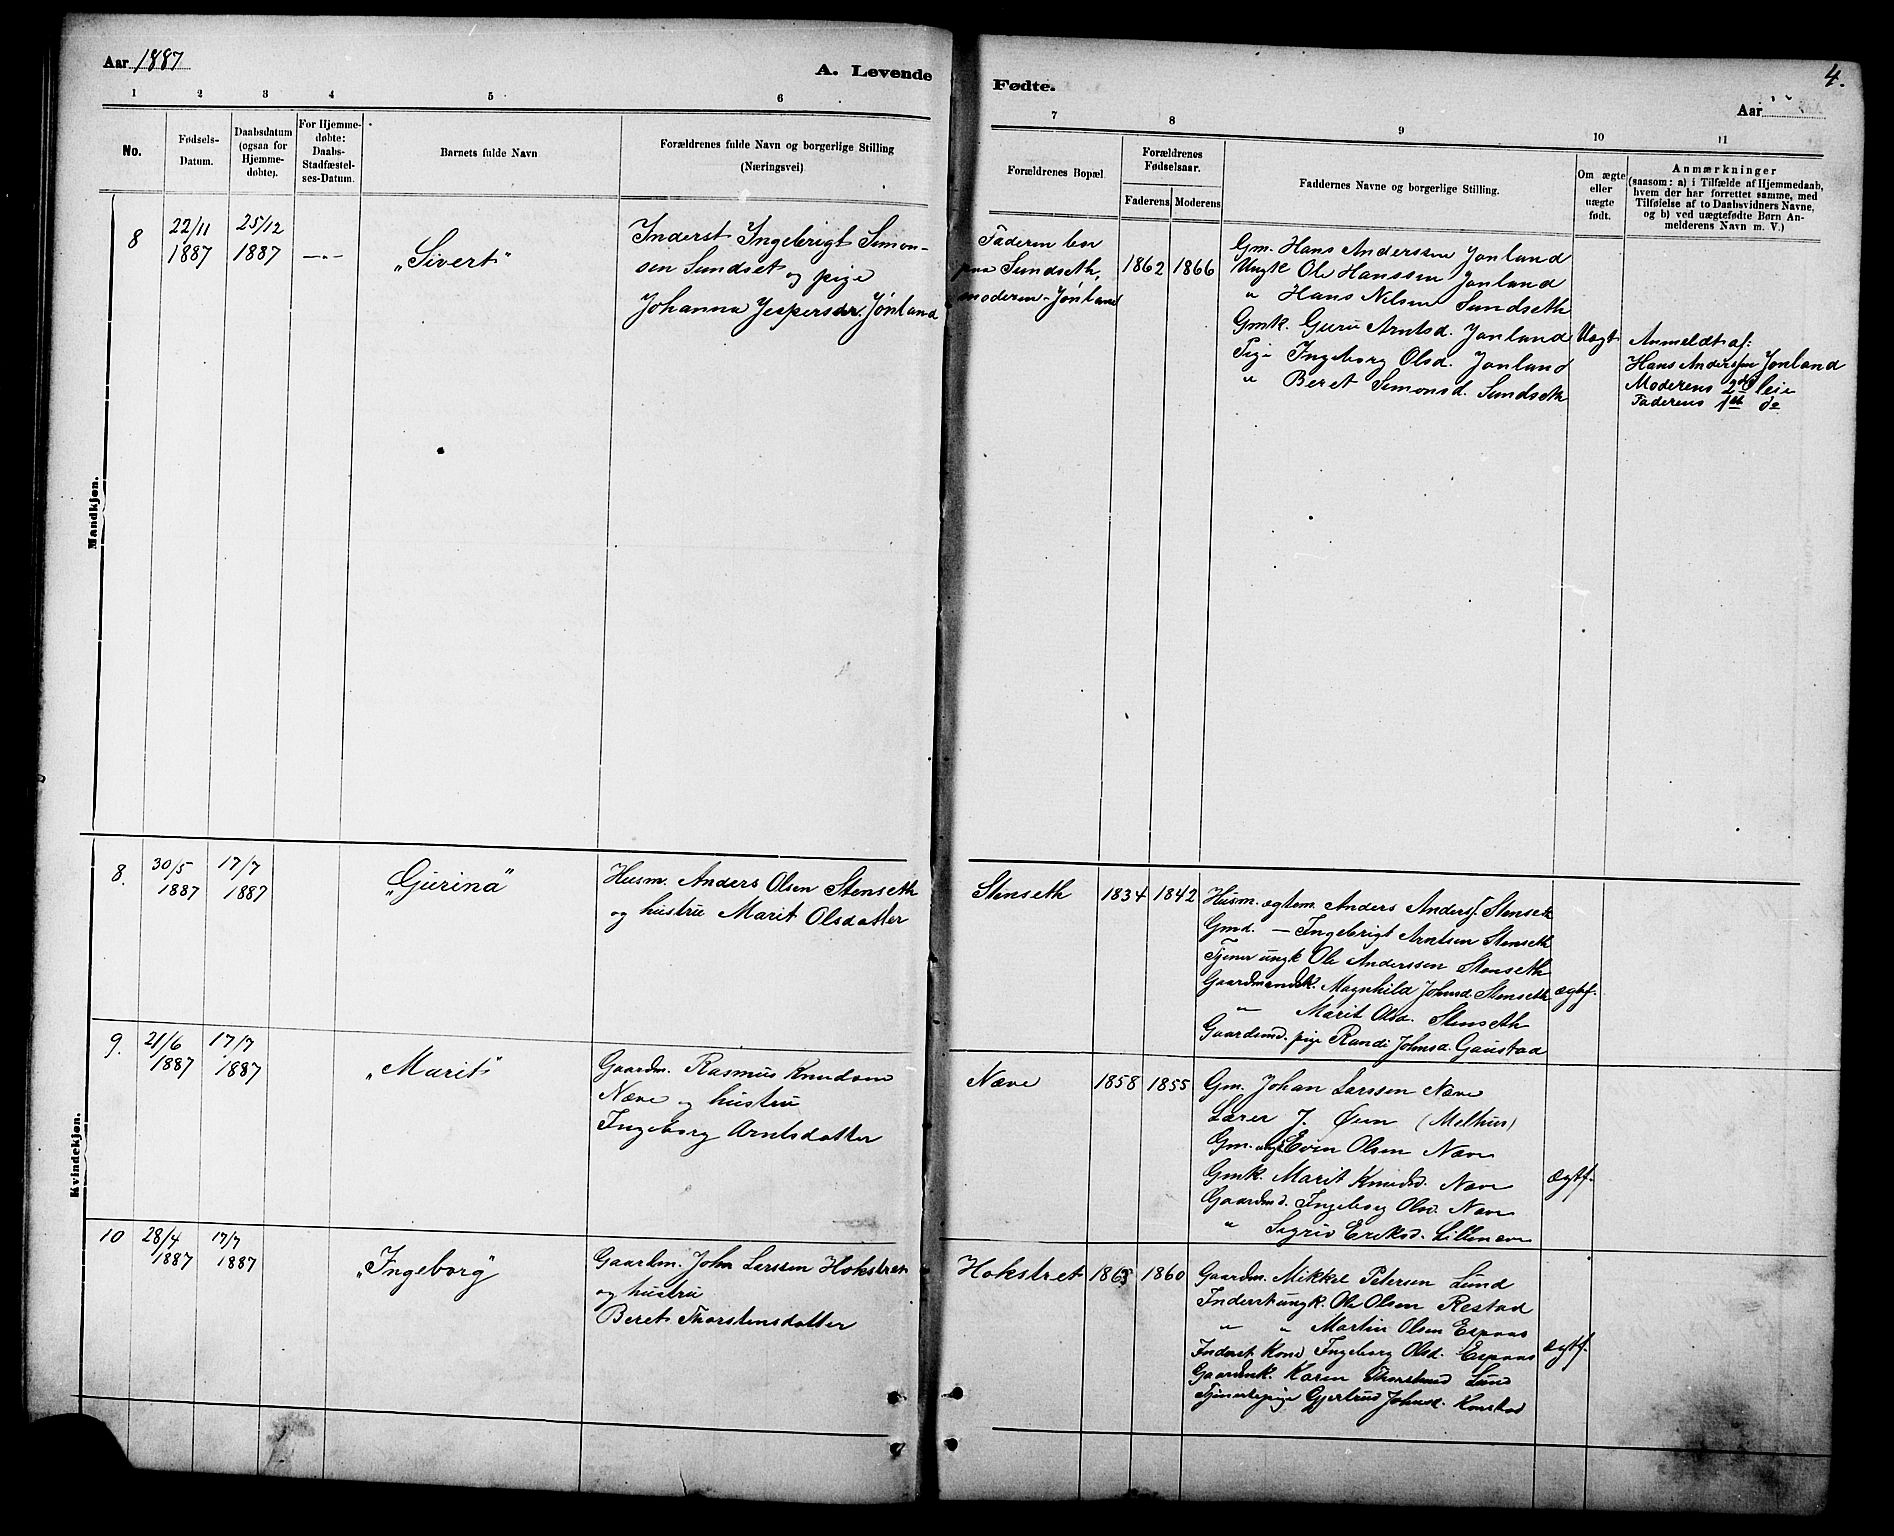 Aar 1887
A. Levende
Fødte.
4.
Aar
1 2 3 4 5 6
7 8 9 10 11
No.
Fødsels-
Datum.
Daabsdatum
(ogsaa for
Hjemme-
døbte).
For Hjemme-
døbte:
Daabs-
Stadfæstel-
ses-Datum.
Barnets fulde Navn
Forældrenes fulde Navn og borgerlige Stilling
(Næringsvei)
Forældrenes Bopæl.
Forældrenes
Fødselsaar.
Faderens Moderens
Faddernes Navne og borgerlige Stilling.
Om ægte
eller
uægte
født.
Anmærkninger
(saasom: a) i Tilfælde af Hjemmedaab,
hvem der har forrettet samme, med
Tilføielse af to Daabsvidners Navne,
og b) ved uægtefødte Børn An-
melderens Navn m. V.)
Mandkjøn.
8
22/11
1887
25/12
1887
—"—
"Sivert"
Inderst Ingebrigt Simon-
sen Sundset og pige
Johanna Jespersdr. Jønland
Faderen bor
paa Sundseth,
moderen - Jønland
1862 1866
Gm. Hans Anderssen Jonland
Ungk. Ole Hanssen Jonland
" Hans Nilsen Sundseth
Gmk. Guru Arntsd. Jonland
Pige Ingeborg Olsd. Jonland
" Beret Simonsd. Sundseth
Uægt
Anmeldt af:
Hans Anderssen Jonland
Moderens 2det leie
Faderens 1ste do
Kvindekjøn.
8.
30/5
1887
17/7
1887
"Gurina"
Husm. Anders Olsen Stenseth
og hustru Marit Olsdatter
Stenseth
1834 1842
Husm. ogtem. Anders Anders. Stenseth
Gmd. — Ingebrigt Arntsen Stenseth
Tjener ungk Ole Anderssen Stenseth
Gaardmandsk. Magnhild Johnsd. Stenseth
" Marit Olsd. Stenseth
Gaardmd. pige Randi Johnsd. Gaustad
ægtf.
9.
21/6
1887
17/7
1887
"Marit"
Gaardm. Rasmus Knudsen
Næve og hustru
Ingeborg Arntsdatter
Næve
1858 1855
Gm. Johan Larssen Næve
Lærer J. Øien (Melhus)
Gm. ungk Even Olsen Næve
Gmk. Marit Knudsd. Næve
Gaardmd. Ingeborg Olsd. Næve
" Sigrid Eriksd. Lillenæve
Ægtf.
10
28/4
1887
17/7
1887
"Ingeborg"
Gaardm. John Larssen Hokstret
og hustru
Beret Thorstensdatter
Hokstret
1863 1860
Gaardm. Mikkel Petersen Lund
Inderst ungk. Ole Olsen Restad
" " Martin Olsen Espaas
Inderst Kone Ingeborg Olsd. Espaas
Gaardmk. Karen Thorstensd Lund
Tjenestepige Gjertrud Johnsd. Konstad
ægtf.